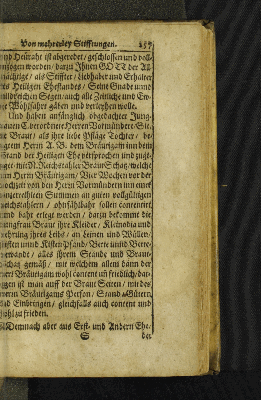 Von mehrerley Stifftungen. 257
und Heurahr ist abgeredet / geschlossen und voll-
zogen worden / darzu Ihnen GOTT der All-
mächtige / als Stiffter / Liebhaber und Erhalter
des Heiligen Ehestandes / Seine Gnade und
mildreichen Segen / auch alle Zeitliche und Ew-
ige Wohlfahrt gäben und verleyhen wolle.
Und haben anfänglich obgedachter Jung-
frauen E. verordnete Herren Vormündere
Braut / als ihre liebe Pflæg Tochter /
Herrn A. B. dem Bräutigam inn dem
Stand der Heiligen Ehe versprochen und zuge-
Reichsthaler Braut Schatz / welche
Herrn Bräutigam / Vier Wochen vor der
Hochzeit von den Herrn Vormündern inn einer
unzertheilten Summen an guten vollgültigen
Reichsthalern / ohnfählbahr sollen contentiret
und bahr erlegt werden / darzu bekommt die
Jungfrau Braut ihre Kleider / Kleinodia und
ihres Leibs / an Leinen und Wüllen /
Kisten Pfand / Bette und Bette-
/ alles ihrem Stande und Braut-
schatz gemäß / mit welchem allem dann der
Herr Bräutigam wohl content und friedlich / dar-
gegen ist man auff der Braut Seiten / mit des
Herrn Bräutigams Person / Stand / Gütern,
und Einbringen / gleichfalls auch content und
wohl zu frieden.
Demnach aber aus Erst- und Andern Ehe-
S der